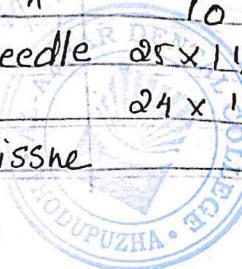 10
eedle 25 x 1
24 x 1
issne
AR DENTAL COLLEGE
ODUPUZHA